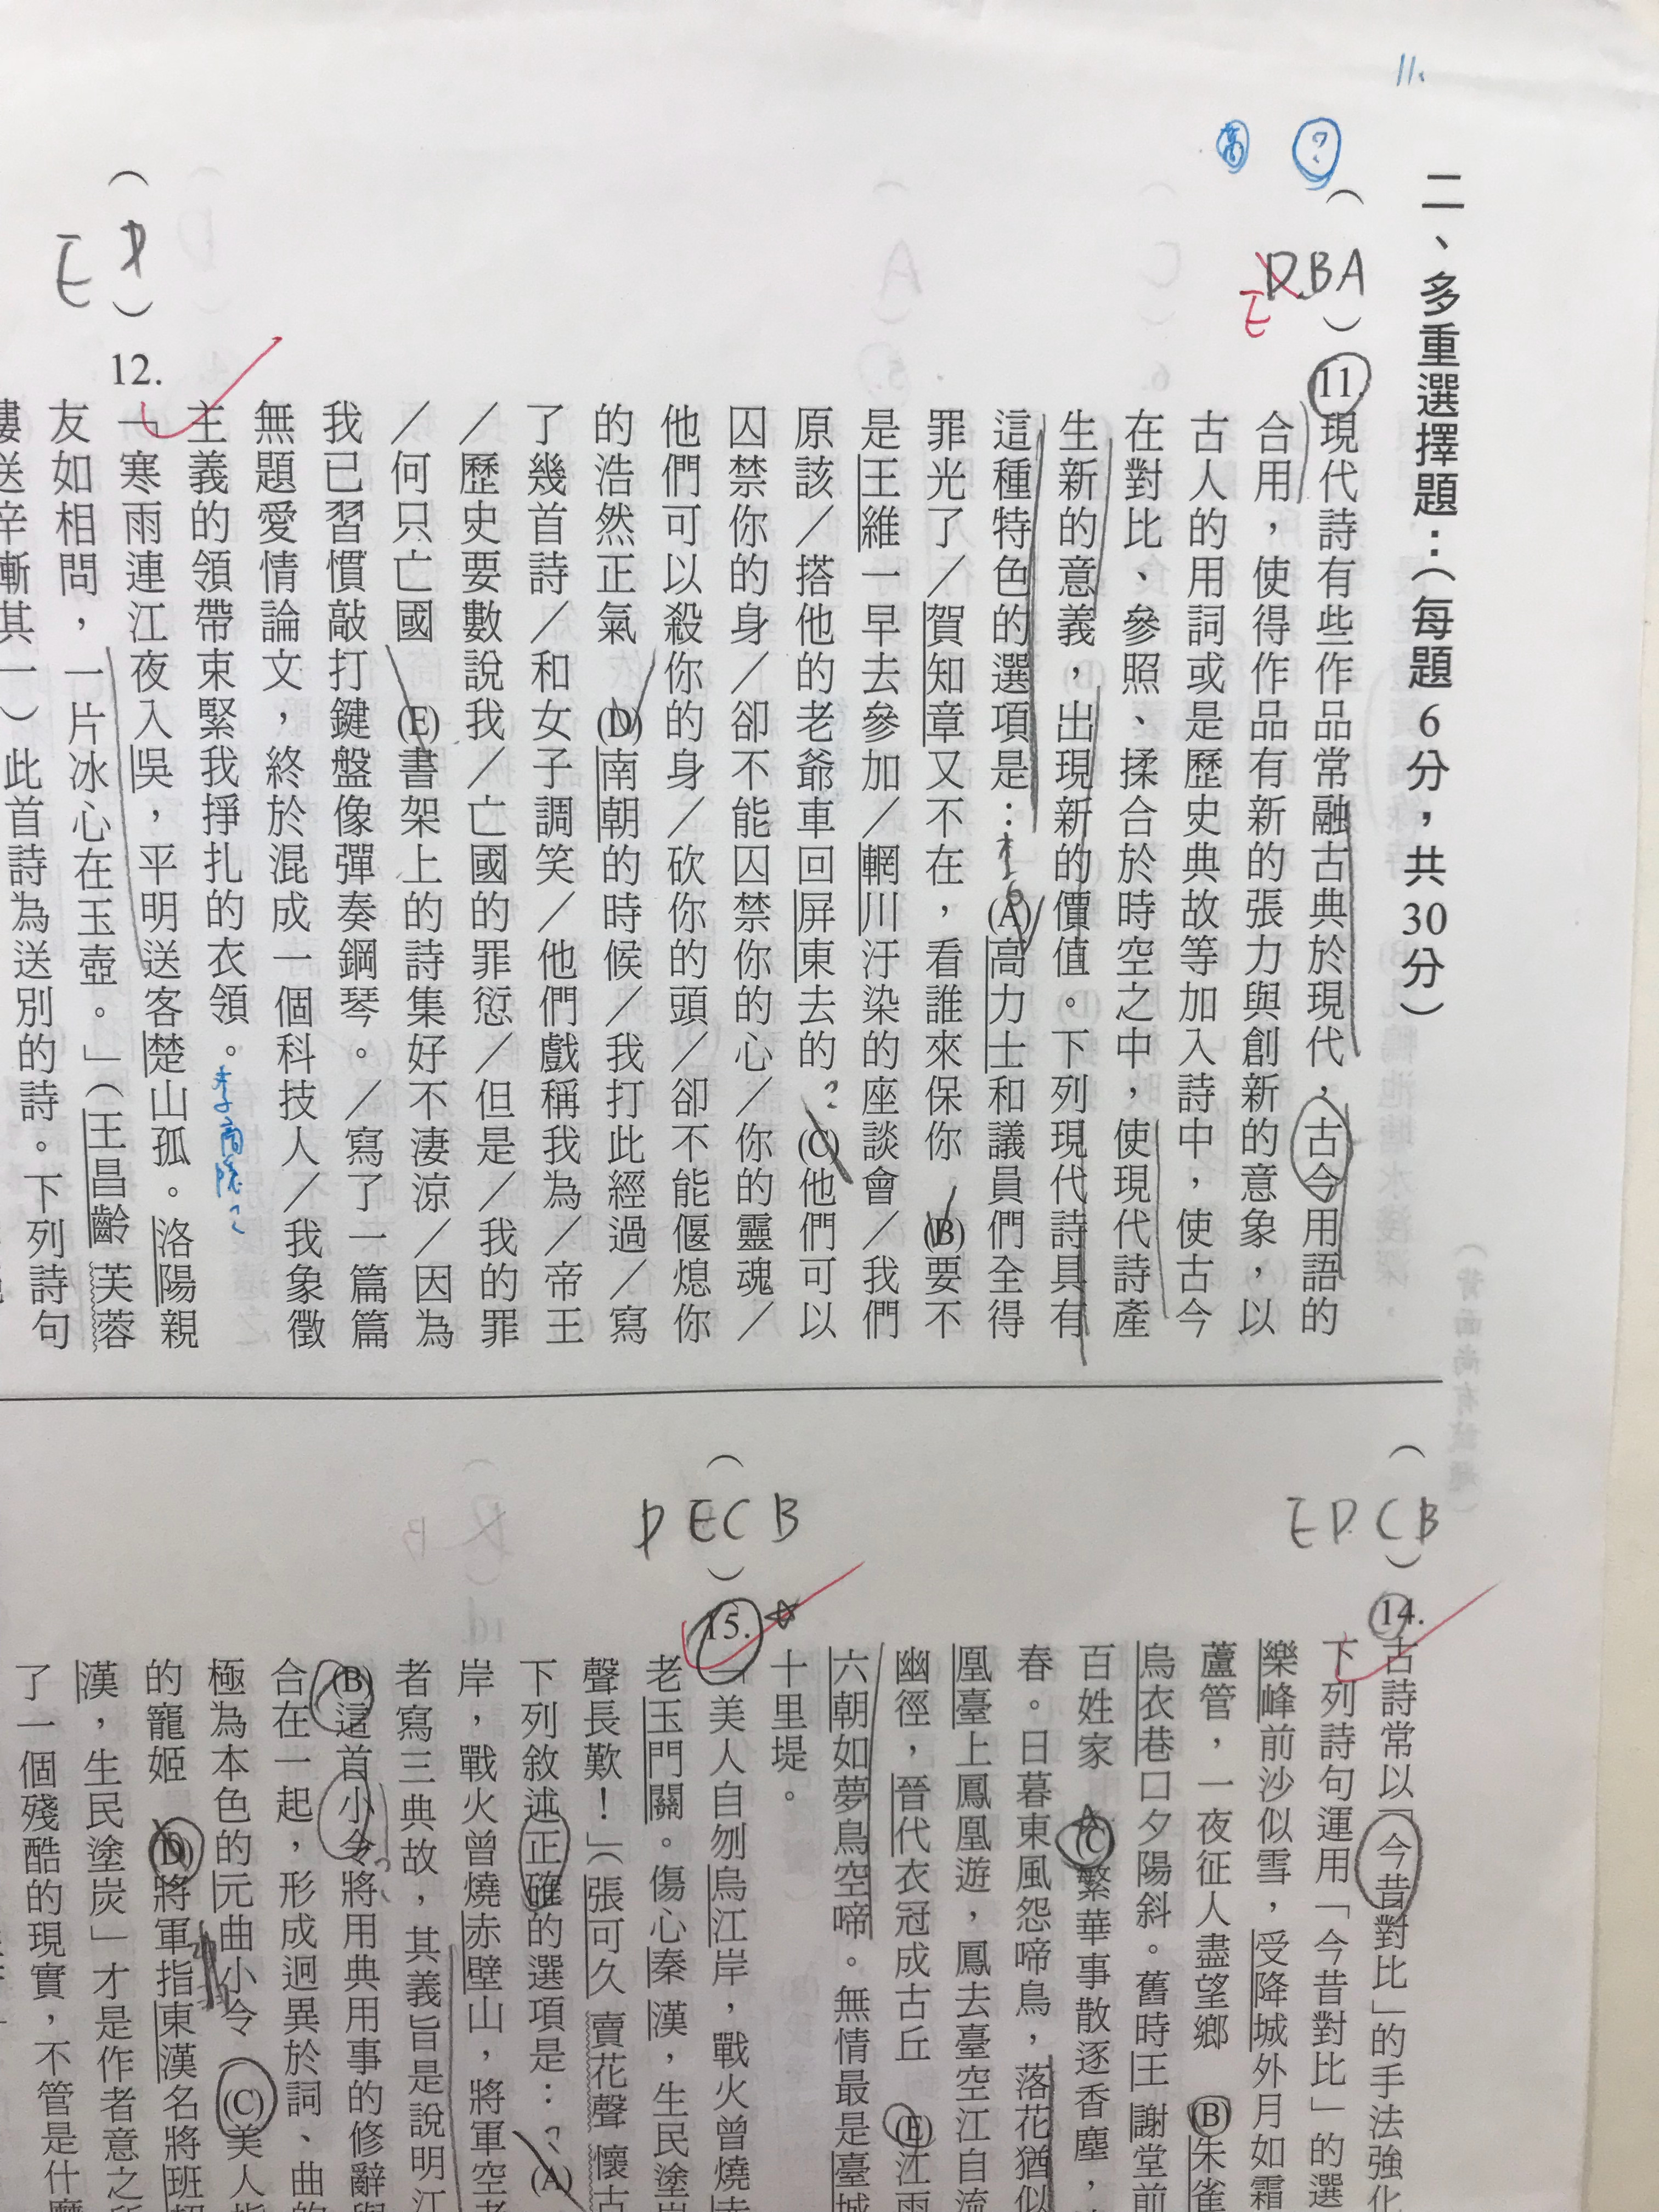 11.
?
高
二、多重選擇題：（每題6分，共30分）
（DBA）
E
11.現代詩有些作品常融古典於現代、古今用語的
合用，使得作品有新的張力與創新的意象，以
古人的用詞或是歷史典故等加入詩中，使古今
在對比、參照、揉合於時空之中，使現代詩產
生新的意義，出現新的價值。下列現代詩具有
這種特色的選項是：(A)高力士和議員們全得
罪光了／賀知章又不在，看誰來保你 (B)要不
是王維一早去參加／輞川汙染的座談會／我們
原該／搭他的老爺車回屏東去的 (C)他們可以
囚禁你的身／卻不能囚禁你的心／你的靈魂／
他們可以殺你的身／砍你的頭／卻不能偃熄你
的浩然正氣 (D)南朝的時候／我打此經過／寫
了幾首詩／和女子調笑／他們戲稱我為／帝王
／歷史要數說我／亡國的罪愆／但是／我的罪
／何只亡國 (E)書架上的詩集好不淒涼／因為
我已習慣敲打鍵盤像彈奏鋼琴。／寫了一篇篇
無題愛情論文，終於混成一個科技人／我象徵
主義的領帶束緊我掙扎的衣領。
李商隱？
（D）
E
12.「寒雨連江夜入吳，平明送客楚山孤。洛陽親
友如相問，一片冰心在玉壺。」（王昌齡 芙蓉
樓送辛漸其一）此首詩為送別的詩。下列詩句
（背面尚有試題）
（EDCB）
14.古詩常以「今昔對比」的手法強化
下列詩句運用「今昔對比」的選
樂峰前沙似雪，受降城外月如霜
蘆管，一夜征人盡望鄉 (B)朱雀
烏衣巷口夕陽斜。舊時王謝堂前
百姓家 (C)繁華事散逐香塵，
春。日暮東風怨啼鳥，落花猶似
凰臺上鳳凰遊，鳳去臺空江自流
幽徑，晉代衣冠成古丘 (E)江雨
六朝如夢鳥空啼。無情最是臺城
十里堤。
（DECB）
15.「美人自刎烏江岸，戰火曾燒赤
老玉門關。傷心秦漢，生民塗炭
聲長歎！」（張可久 賣花聲 懷古
下列敘述正確的選項是：(A)
岸，戰火曾燒赤壁山，將軍空老
者寫三典故，其義旨是說明江
(B)這首小令將用典用事的修辭與
合在一起，形成迥異於詞、曲的
極為本色的元曲小令 (C)美人指
的寵姬 (D)將軍指東漢名將班超
漢，生民塗炭」才是作者意之所
了一個殘酷的現實，不管是什麼